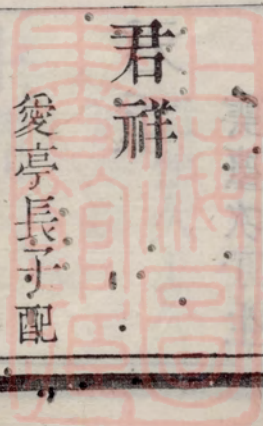 君祥
愛亭長子配